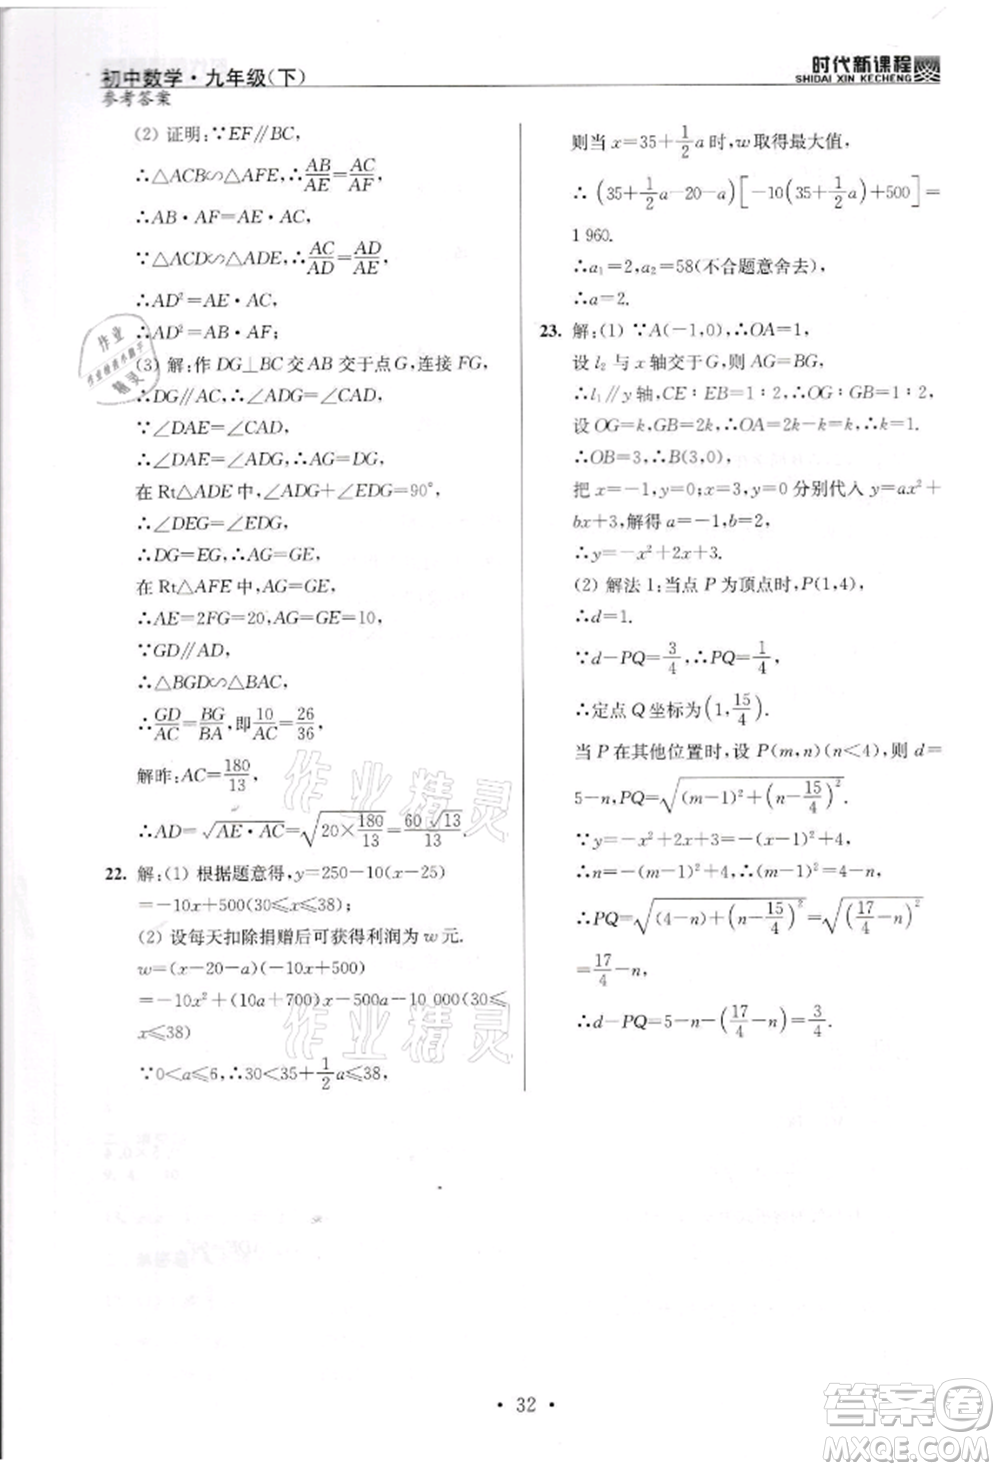 初中数学·九年级(下)
参考答案
时代新课程
SHIDAI XIN KECHENG
(2) 证明:∵EF∥BC,
∴△ACB∽△AFE,∴AB/AE=AC/AF,
∴AB·AF=AE·AC,
∵△ACD∽△ADE,∴AC/AD=AD/AE,
∴AD²=AE·AC,
∴AD²=AB·AF;
(3) 解:作 DG⊥BC交 AB 于点G,连接FG,
∴DG∥AC,∴∠ADG=∠CAD,
∵∠DAF=∠CAD,
∴∠DAF=∠ADG,∴AG=DG,
在 Rt△ADE中,∠ADG+∠EDG=90°,
∴∠DEG=∠EDG,
∴DG=EG,∴AG=GE,
在 Rt△AFE 中,AG=GE,
∴AE=2FG=20,AG=GE=10,
∵GD∥AD,
∴△BGD∽△BAC,
∴GD/AC=BG/BA,即10/AC=26/36,
解昨:AC=180/13,
∴AD=√(AE·AC)=√(20×180/13)=60√13/13.
22. 解:(1) 根据题意得,y=250-10(x-25)
=-10x+500(30≤x≤38);
(2) 设每天扣除捐赠后可获得利润为 w 元.
w=(x-20-a)(-10x+500)
=-10x²+(10a+700)x-500a-10 000(30≤
x≤38)
∵0<a≤6,∴30<35+1/2a≤38,
则当 x=35+1/2a时,w取得最大值,
∴(35+1/2a-20-a)[-10(35+1/2a)+500]=
1 960.
∴a₁=2,a₂=58(不合题意舍去),
∴a=2.
23. 解:(1) ∵A(-1,0),∴OA=1,
设 l₂ 与 x 轴交于G,则 AG=BG,
∴l₁∥y轴,CE∶EB=1∶2,∴OG∶GB=1∶2,
设 OG=k,GB=2k,∴OA=2k-k=k,∴k=1.
∴OB=3,∴B(3,0),
把 x=-1,y=0;x=3,y=0 分别代入 y=ax²+
bx+3,解得 a=-1,b=2,
∴y=-x²+2x+3.
(2) 解法 1:当点 P 为顶点时,P(1,4),
∴d=1.
∵d-PQ=3/4,∴PQ=1/4,
∴定点 Q 坐标为(1,15/4).
当 P 在其他位置时,设 P(m,n)(n<4),则 d=
5-n,PQ=√((m-1)²+(n-15/4)²).
∵y=-m²+2m+3=-(m-1)²+4,
∴n=-(m-1)²+4,∴(m-1)²=4-n,
∴PQ=√((4-n)+(n-15/4)²)=√((17/4-n)²)
=17/4-n,
∴d-PQ=5-n-(17/4-n)=3/4.
· 32 ·
作业
作业精灵
作业精灵
精灵
答案圈
MXQE.COM